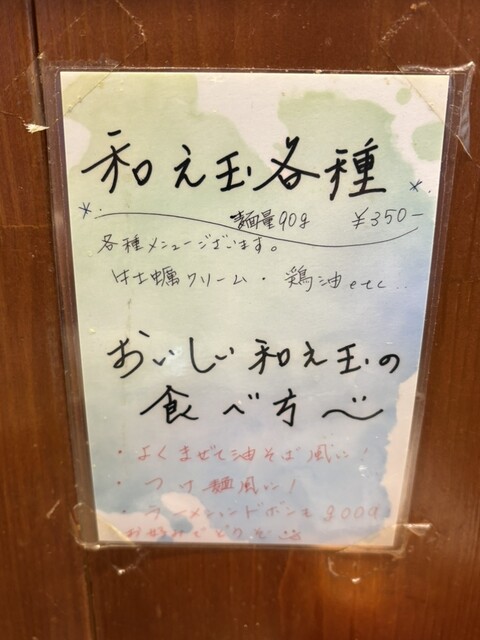 和え玉各種
麺量90g ¥350-
各種メニューございます。
牡蠣クリーム・鶏油etc...
おいしい和え玉の
食べ方
・よくまぜて油そば風に!
・つけ麺風に!
・ラーメンにドボンで good
お好みでどうぞ